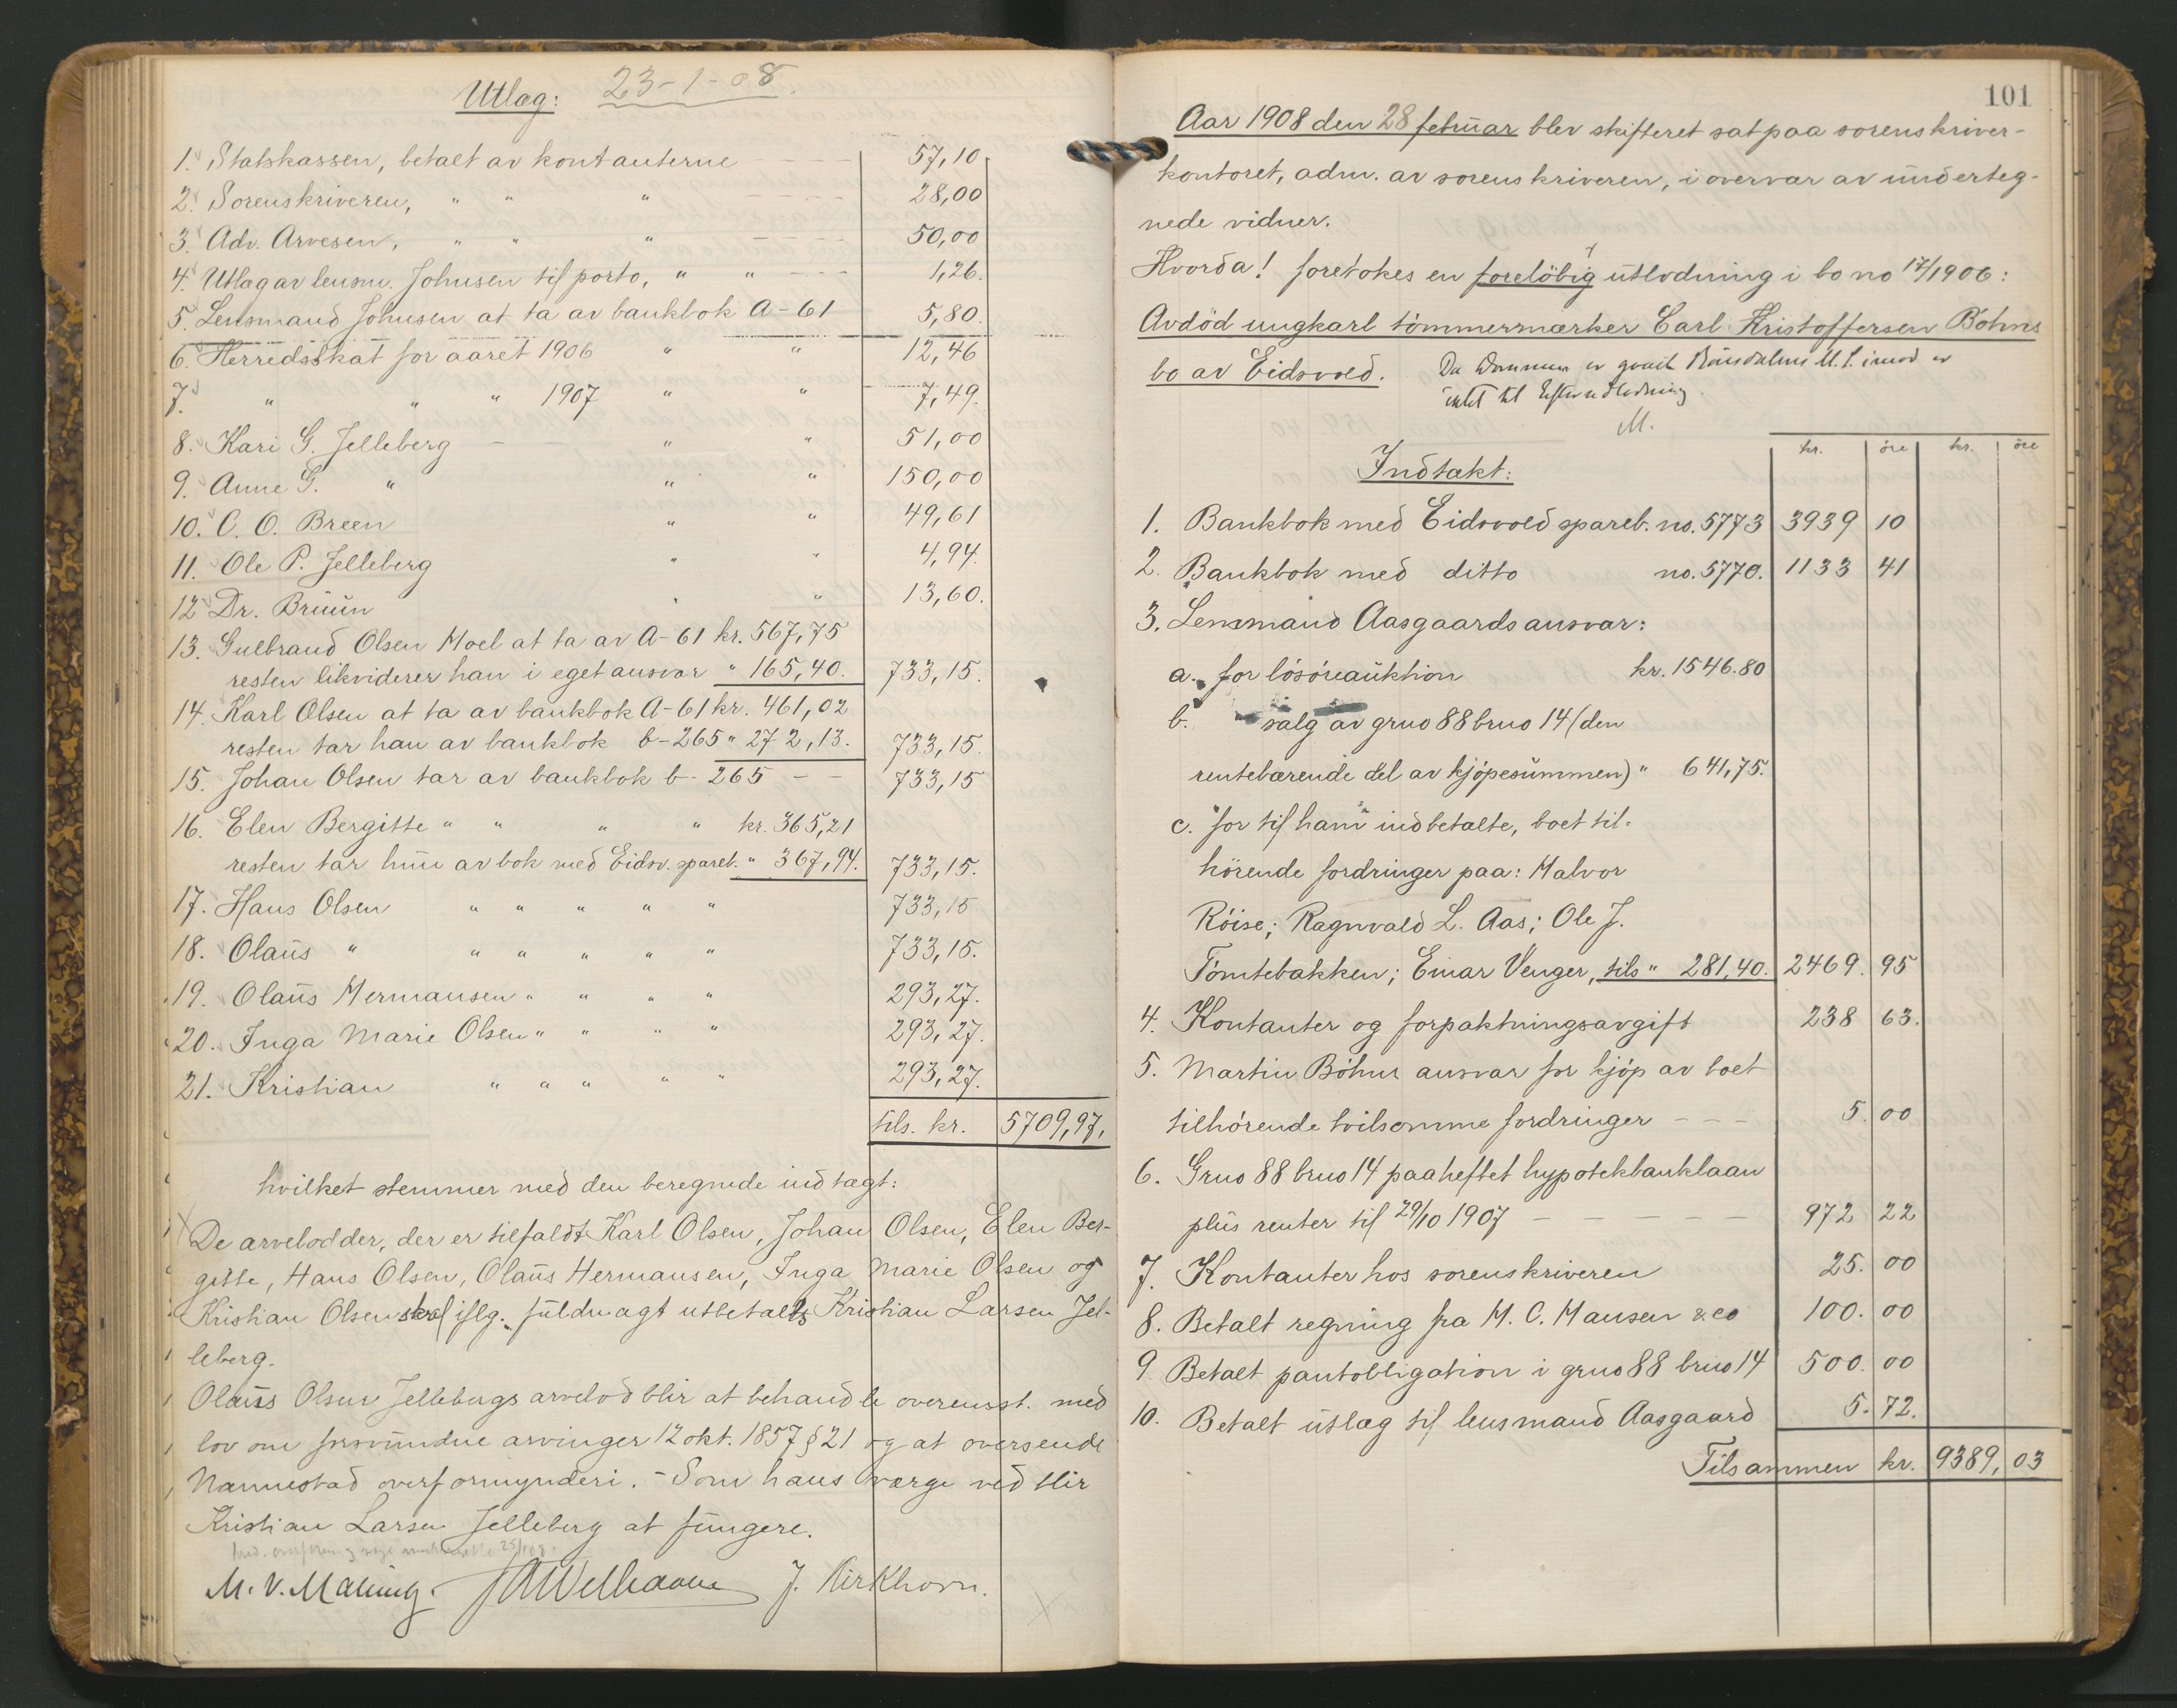 Utlæg: 23-1-08.
1. Statskassen, betalt av kontanterne - - - - 57,10.
2. Sorenskriveren, " " " - - - - 28,00
3. Adv. Arvesen, " " " - - - - 50,00
4. Utlæg av lensm. Johnsen til porto, " " - - - 1,26.
5. Lensmand Johnsen at ta av bankbok A-61 5,80.
6. Herredsskat for aaret 1906 " " 12,46
7. " " " 1907 " " 7,49.
8. Kari G. Jelleberg - - " " 51,00
9. Anne G. " " " 150,00
10. C. O. Breen " " 49,61
11. Ole P. Jelleberg " " 4,94.
12 Dr. Bruun " " 13,60.
13. Gulbrand Olsen Moel at ta av A-61 kr. 567,75
resten likviderer han i eget ansvar " 165,40. 733,15.
14. Karl Olsen at ta av bankbok A-61 kr. 461,02
resten tar han av bankbok b-265 " 272,13. 733,15.
15. Johan Olsen tar av bankbok b-265 - - 733,15
16. Elen Bergitte " " " " kr. 365,21
resten tar hun av bok med Eidsv. spareb. " 367,94. 733,15.
17. Hans Olsen " " " " " 733,15
18. Olaus " " " " " " 733,15.
19. Olaus Hermansen " " " " 293,27.
20. Inga Marie Olsen " " " " 293,27.
21. Kristian " " " " " 293,27.
tils. kr. 5709,97.
hvilket stemmer med den beregnede indtægt:
De arvelodder, der er tilfaldt Karl Olsen, Johan Olsen, Elen Ber-
gitte, Hans Olsen, Olaus Hermansen, Inga Marie Olsen og
Kristian Olsen skal iflg. fuldmagt utbetales Kristian Larsen Jel-
leberg.
Olaus Olsen Jellebergs arvelod blir at behandle overensst. med
lov om forsvundne arvinger 12 okt. 1857 § 21 og at oversende
Nannestad overformynderi. - Som hans verge ved blir
Kristian Larsen Jelleberg at fungere.
M. V. Maling. J. Kirkhorn.
101
Aar 1908 den 28 februar blev skifteret sat paa sorenskriver-
kontoret, adm. av sorenskriveren, i overvær av underteg-
nede vidner.
Hvorda! foretokes en foreløbig utlodning i bo no 17/1906:
Avdød ungkarl tømmermærker Carl Kristoffersen Bøhns
bo av Eidsvold. Da Dommen er gaait M. P. imod er
intet til Efterutlodning.
M.
kr. øre kr. øre
Indtækt:
1. Bankbok med Eidsvold spareb. no. 5773 3939 10
2. Bankbok med ditto no. 5770. 1133 41
3. Lensmand Aasgaards ansvar:
a. for løsøreauktion kr. 1546.80
b. " salg av gruo 88 bruo 14 (den
rentebærende del av kjøpesummen) " 641,75.
c. for til ham indbetalte, boet til-
hørende fordringer paa: Halvor
Røise; Ragnvald L. Aas; Ole J.
Tømtebakken; Einar Venger, tils " 281,40. 2469. 95
4. Kontanter og forpaktningsavgift 238 63.
5. Martin Bøhns ansvar for kjøp av boet
tilhørende tvilsomme fordringer - - - 5. 00
6. Gruo 88 bruo 14 paaheftet hypotekbanklaan
plus renter til 29/10 1907 - - - - - 972 22
7. Kontanter hos sorenskriveren 25. 00
8. Betalt regning fra M. C. Hansen & co 100. 00
9. Betalt pantobligation i gruo 88 bruo 14 500. 00
10. Betalt utlæg til lensmand Aasgaard 5. 72.
Tilsammen kr. 9389, 03